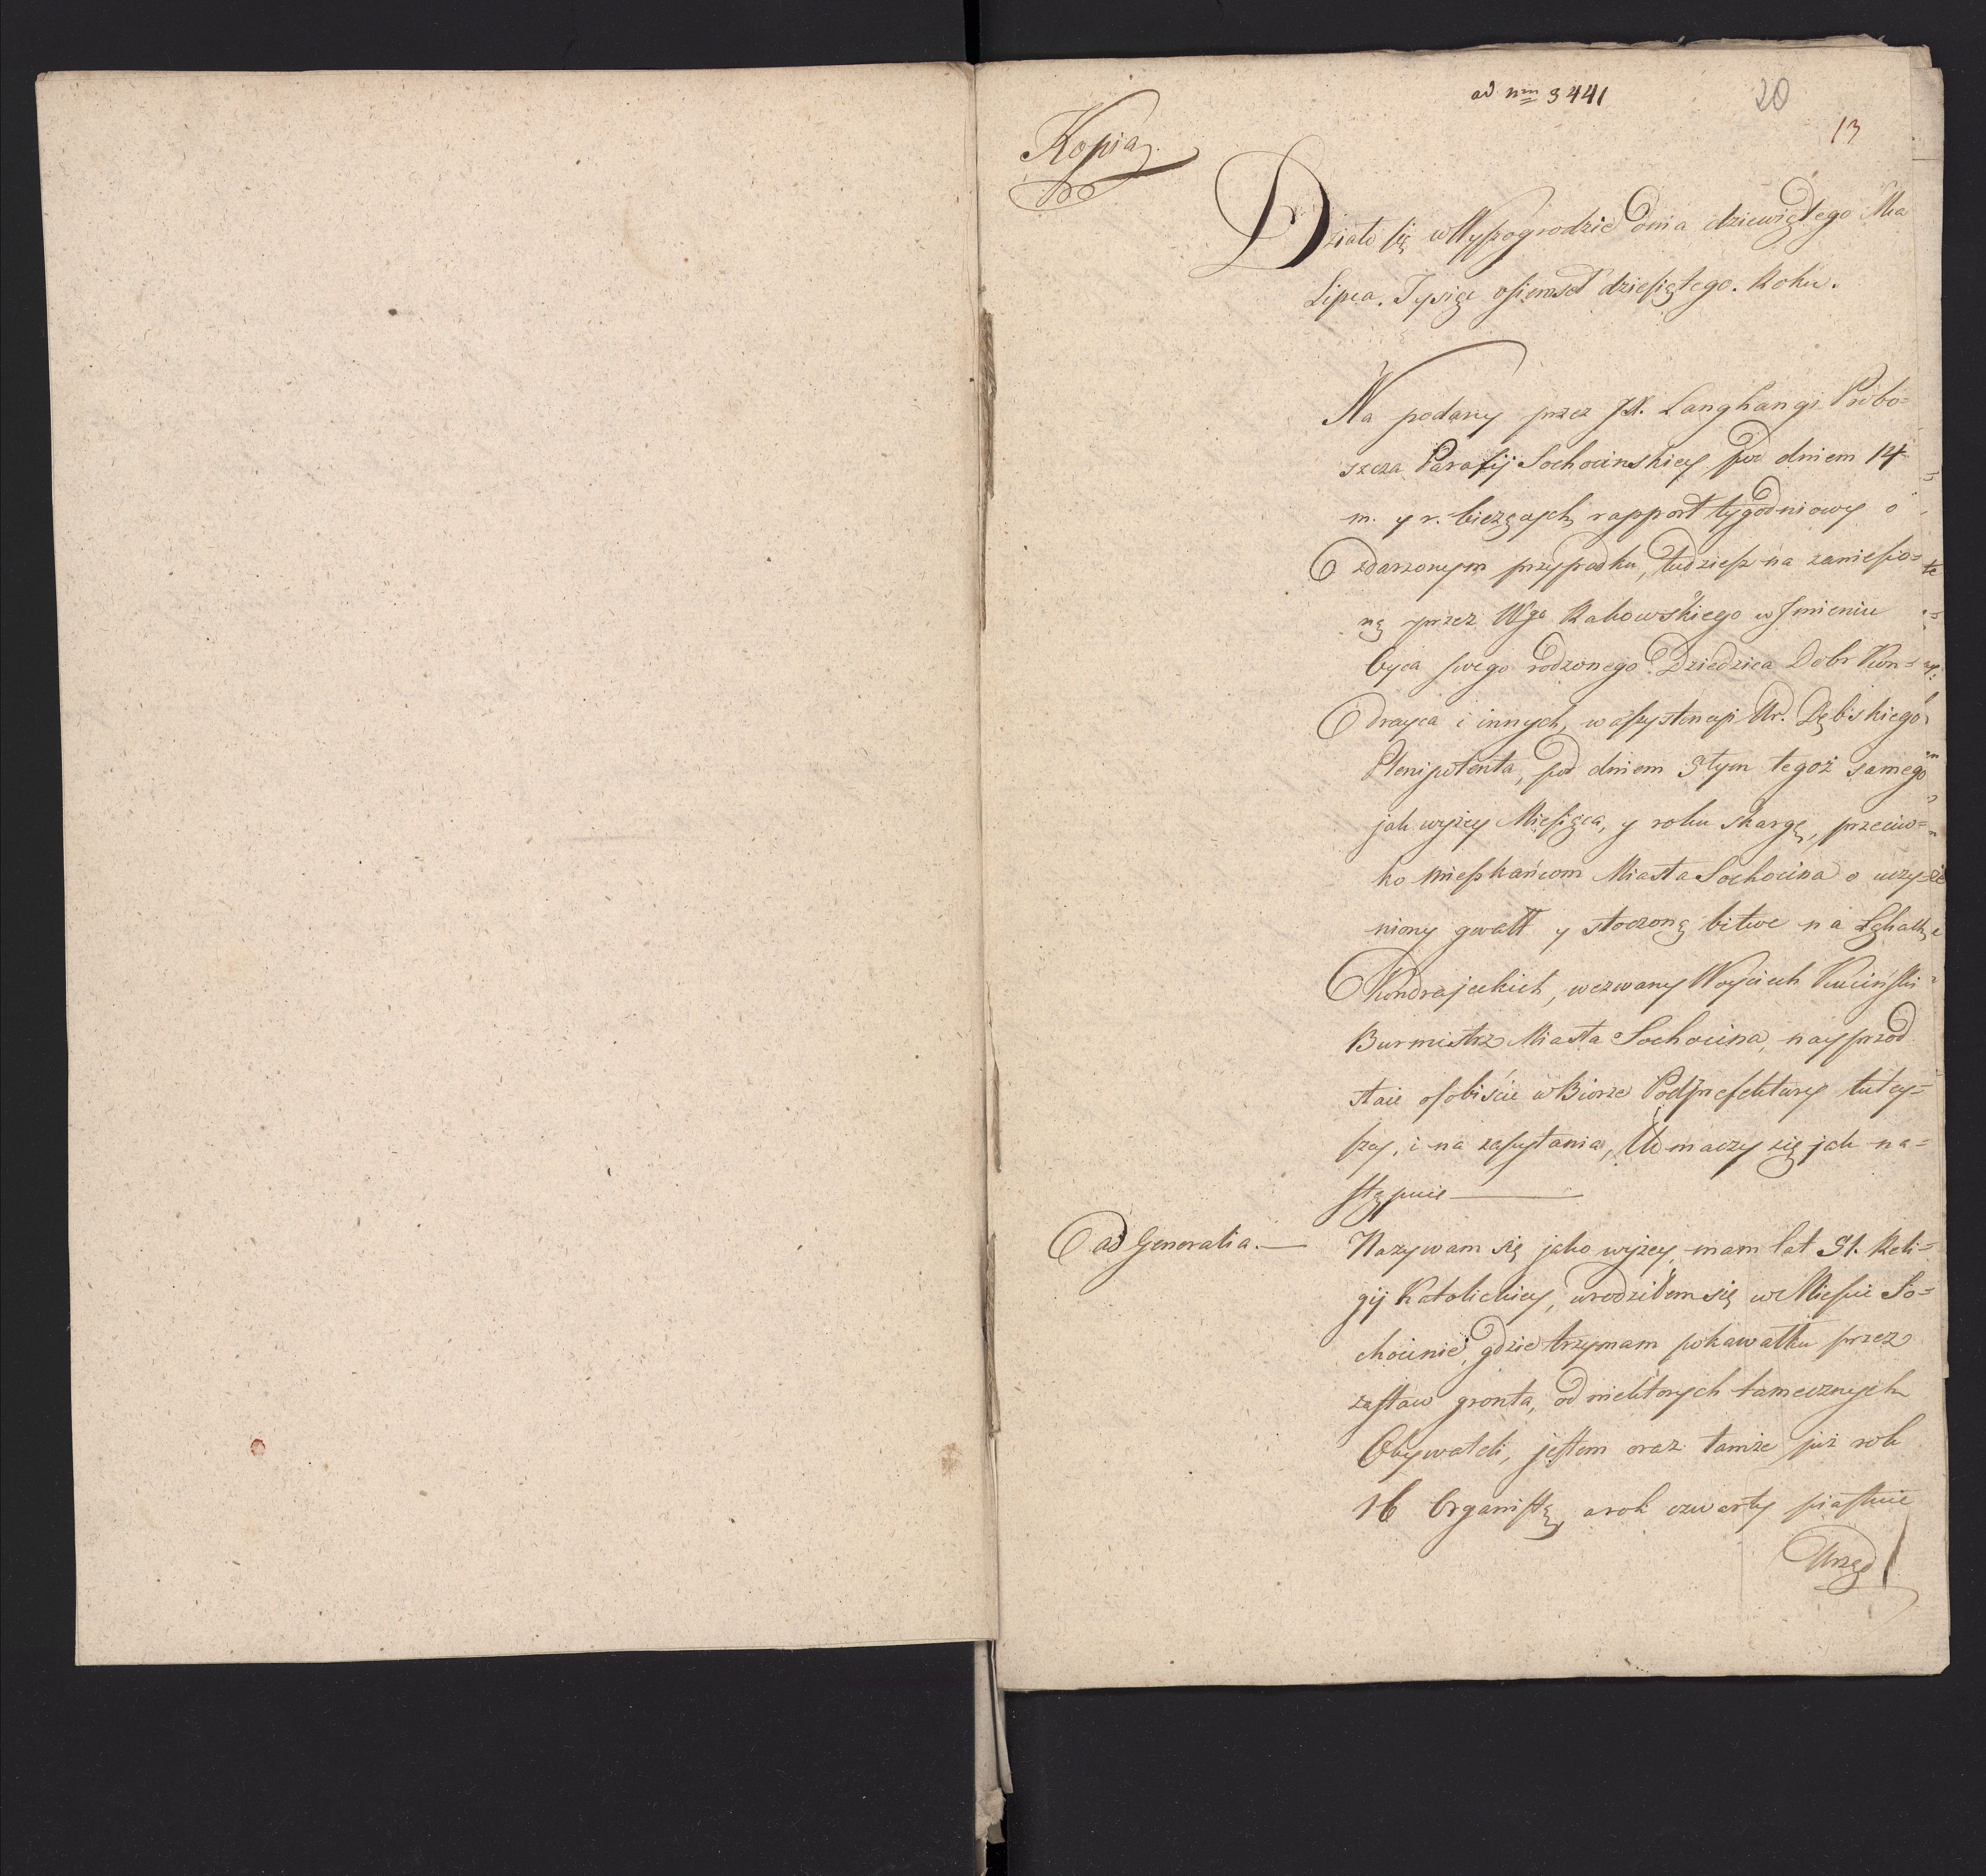 ad nrm 3441
20
13
Kopia
Działo się w Wyszogrodzie dnia dziewiątego Mca
Lipca. Tysiąc osiemset dziesiątego. Roku.
Na podany przez JX. Langhangi Probo=
szcza Parafij Sochocinskiey pod dniem 14
m. y r. bieżących, rapport tygodniowy o
zdarzonym przypadku, tudziesz na zaniesio=
ną przez Wgo Rakowskiego w Jmieniu
Oyca swego rodzonego Dziedzica Dobr Kon=
drayca i innych, w assystencyi Ur. Dębskiego
Plenipotenta, pod dniem 9tym tegoż samego
jak wyżey Miesiąca, y roku skargę, przeciw=
ko mieszkańcom Miasta Sochocina o uczy=
niony gwałt y stoczoną bitwe na Łąkach
Kondrajeckich, wezwany Woyciech Kuciński
Burmistrz Miasta Sochocina, nayprzod
staie osobiście w Biorze Podprefektury tutey=
szey, i na zapytania, tłomaczy się jak na=
stępuie
ad Generalia.— Nazywam się jako wyżey, mam lat 51. Reli=
gij Katolickiey, urodziłem się w Mieście So=
chocinie, gdzie trzymam po kawałku przez
zastaw gronta, od niektorych tamecznych
Obywateli, jestem oraz tamże już rok
16 Organistą, a rok czwarty piastuie
Urząd